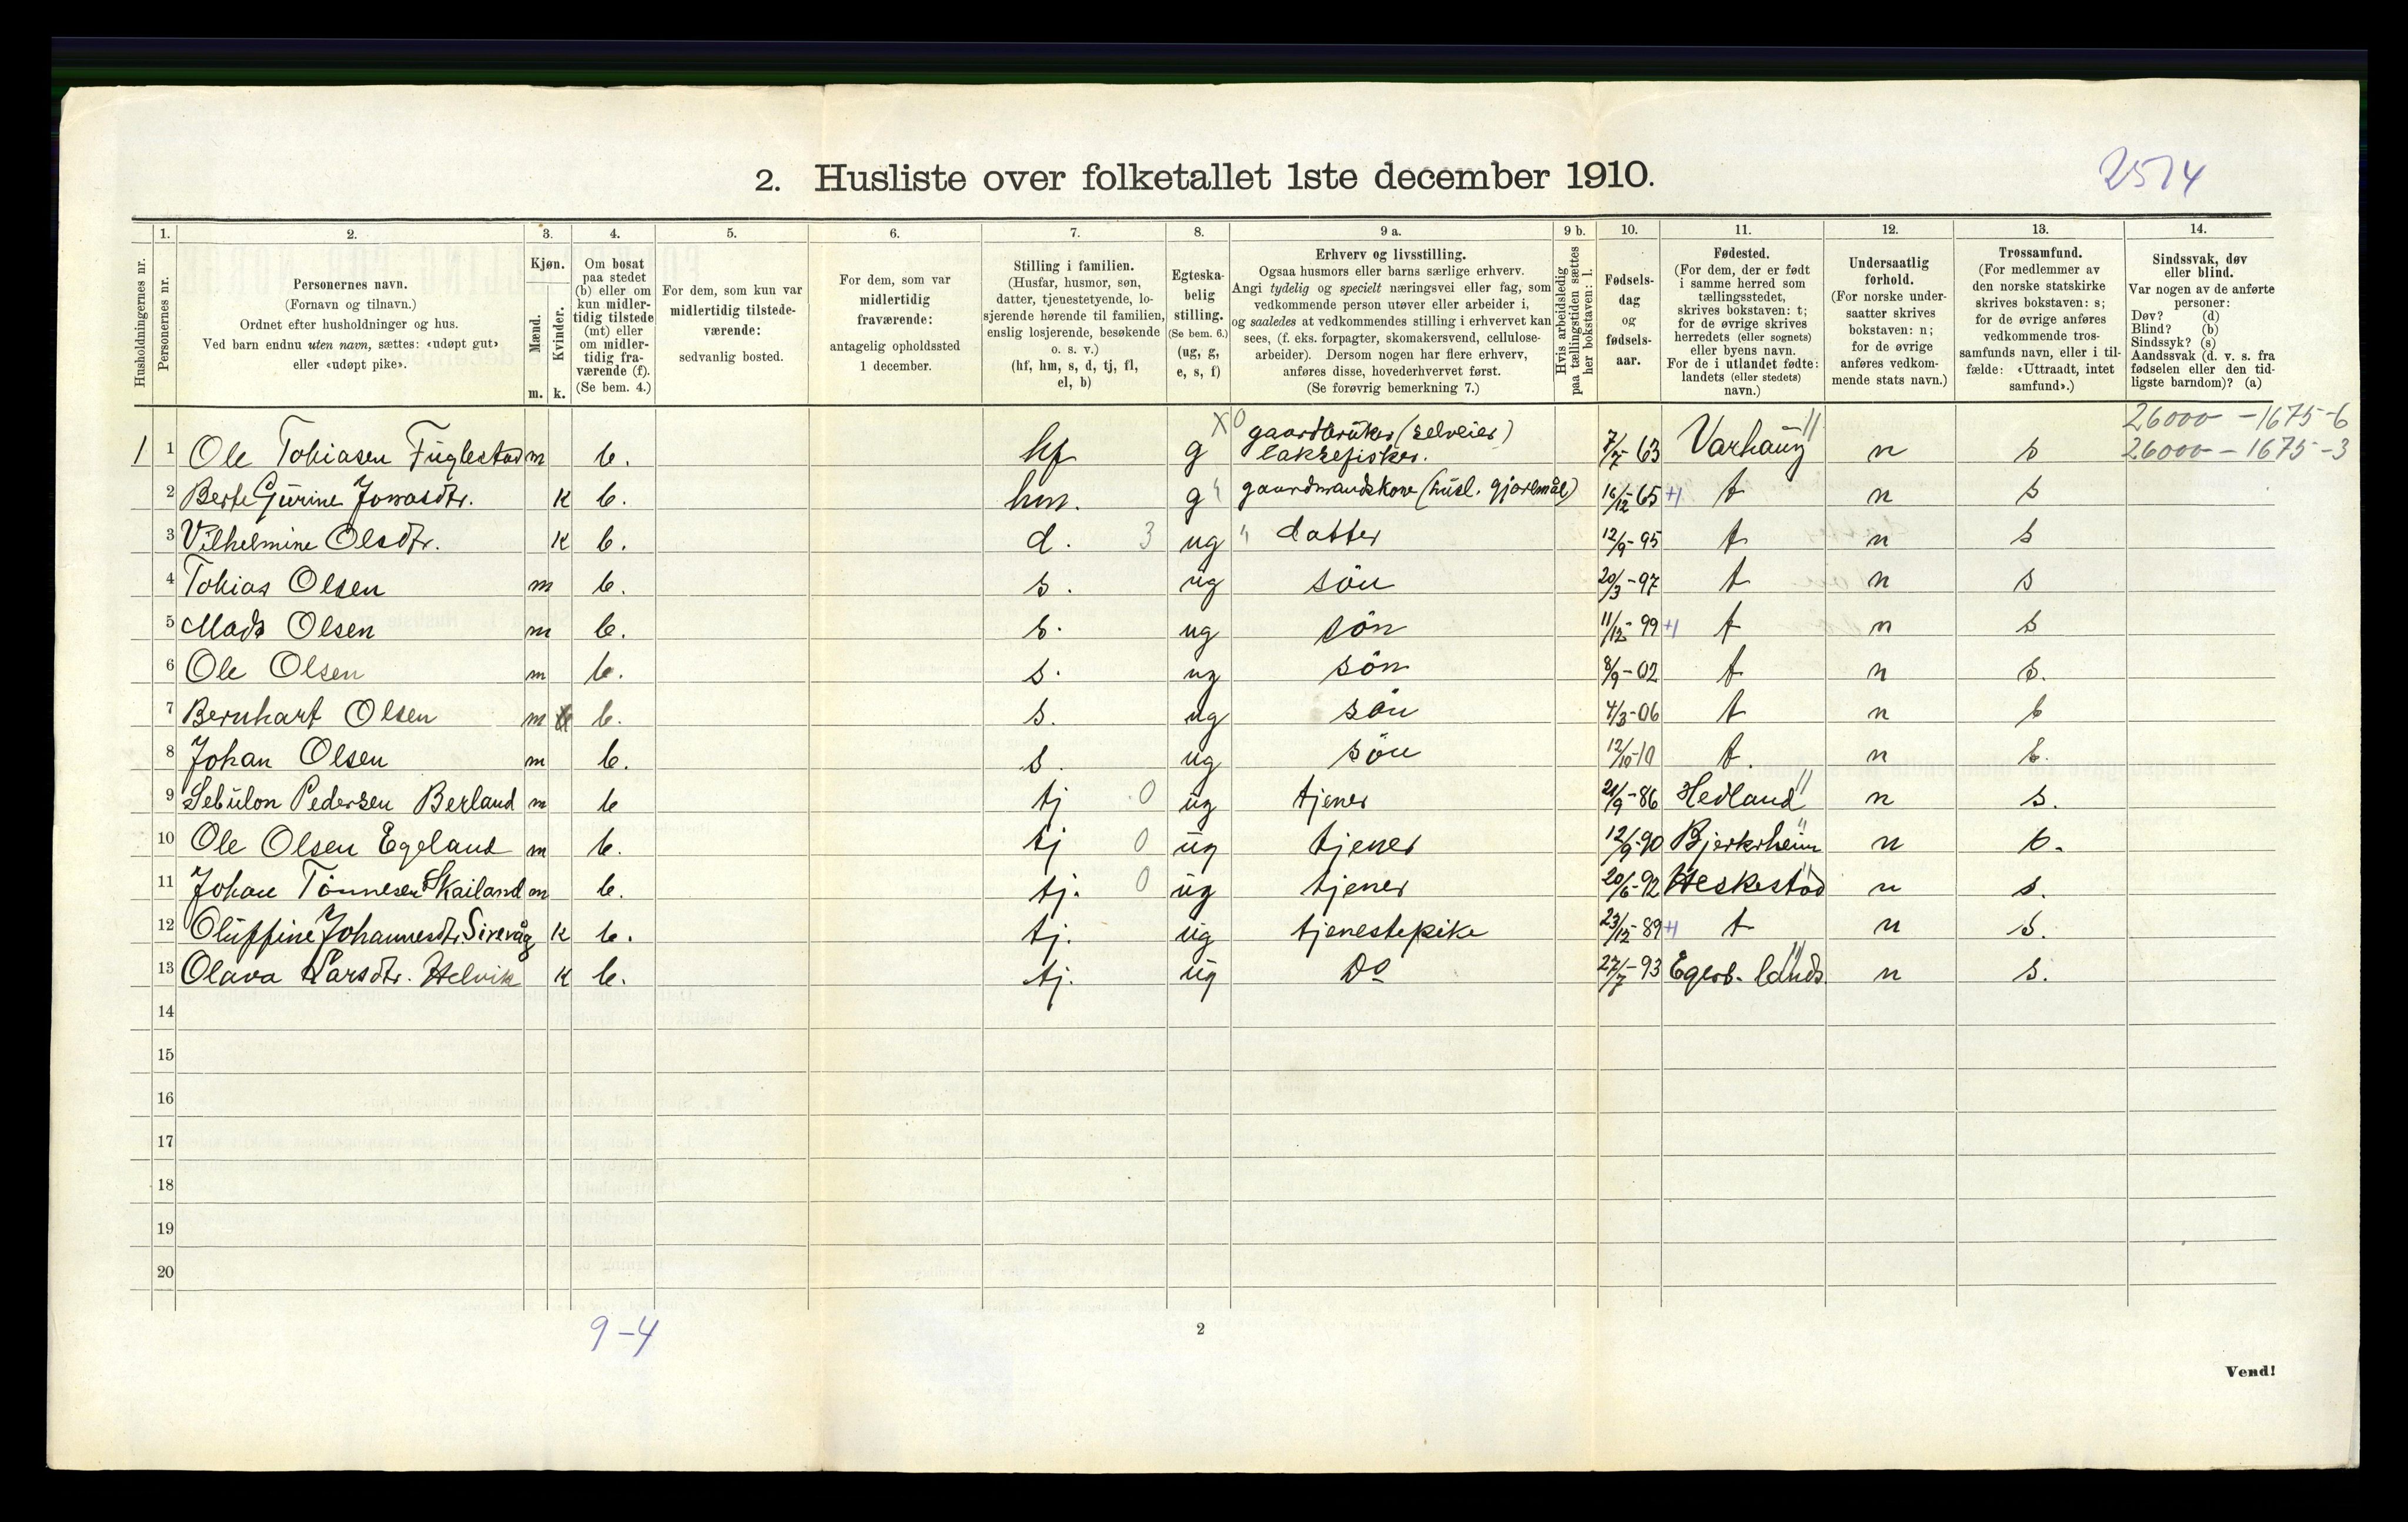 2. Husliste over folketallet 1ste december 1910.
2514
Husholdningernes nr.
1.
Personernes nr.
2.
Personernes navn.
(Fornavn og tilnavn.)
Ordnet efter husholdninger og hus.
Ved barn endnu uten navn, sættes: «udøpt gut»
eller «udøpt pike».
3.
Kjøn.
Mænd.
Kvinder.
m. k.
4.
Om bosat
paa stedet
(b) eller om
kun midler-
tidig tilstede
(mt) eller
om midler-
tidig fra-
værende (f).
(Se bem. 4.)
5.
For dem, som kun var
midlertidig tilstede-
værende:
sedvanlig bosted.
6.
For dem, som var
midlertidig
fraværende:
antagelig opholdssted
1 december.
7.
Stilling i familien.
(Husfar, husmor, søn,
datter, tjenestetyende, lo-
sjerende hørende til familien,
enslig losjerende, besøkende
o. s. v.)
(hf, hm, s, d, tj, fl,
el, b)
8.
Egteska-
belig
stilling.
(Se bem. 6.)
(ug, g,
e, s, f)
9 a.
Erhverv og livsstilling.
Ogsaa husmors eller barns særlige erhverv.
Angi tydelig og specielt næringsvei eller fag, som
vedkommende person utøver eller arbeider i,
og saaledes at vedkommendes stilling i erhvervet kan
sees, (f. eks. forpagter, skomakersvend, cellulose-
arbeider). Dersom nogen har flere erhverv,
anføres disse, hovederhvervet først.
(Se forøvrig bemerkning 7.)
9 b.
Hvis arbeidsledig
paa tællingstiden sættes
her bokstaven: l.
10.
Fødsels-
dag
og
fødsels-
aar.
11.
Fødested.
(For dem, der er født
i samme herred som
tællingsstedet,
skrives bokstaven: t;
for de øvrige skrives
herredets (eller sognets)
eller byens navn.
For de i utlandet fødte:
landets (eller stedets)
navn.)
12.
Undersaatlig
forhold.
(For norske under-
saatter skrives
bokstaven: n;
for de øvrige
anføres vedkom-
mende stats navn.)
13.
Trossamfund.
(For medlemmer av
den norske statskirke
skrives bokstaven: s;
for de øvrige anføres
vedkommende tros-
samfunds navn, eller i til-
fælde: «Uttraadt, intet
samfund».)
14.
Sindssvak, døv
eller blind.
Var nogen av de anførte
personer:
Døv? (d)
Blind? (b)
Sindssyk? (s)
Aandssvak (d. v. s. fra
fødselen eller den tid-
ligste barndom)? (a)
26000 - 1675-6
X 0 gaardbruker (selveier)
1 1 Ole Tobiasen Fuglestad m b. hf g laksefisker. 7/7-63 Varhaug n s 26000 - 1675-3
2 Berte Gurine Jonasdtr. k b. hm. g " gaardmandskone (husl. gjøremål) 16/12-65 +1 t n s
3 Vilhelmine Olsdtr. k b. d. 3 ug " datter 12/9-95 t n s
4 Tobias Olsen m b. s. ug søn 20/3-97 t n s
5 Mads Olsen m b. s. ug søn 11/12-99 +1 t n s
6 Ole Olsen m b. s. ug søn 8/9-02 t n s.
7 Bernhart Olsen m b. s. ug søn 4/3-06 t n s
8 Johan Olsen m b. s. ug søn 12/10-10 t. n s.
9 Sebulon Pedersen Berland m b tj 0 ug tjener 21/9-86 Hedland n s.
10 Ole Olsen Egeland m b. tj 0 ug tjener 12/9-90 Bjerkrheim n s.
11 Johan Tønnesen Skailand m b. tj. 0 ug tjener 20/6-92 Heskestad n s.
12 Oluffine Johannesdtr. Sirevåg k b. tj. ug tjenestepike 23/12-89 +1 t n s.
13 Olava Larsdtr. Helvik k b. tj. ug Do 27/7-93 Egers. lands. n s.
14
15
16
17
18
19
20
9-4
2
Vend!